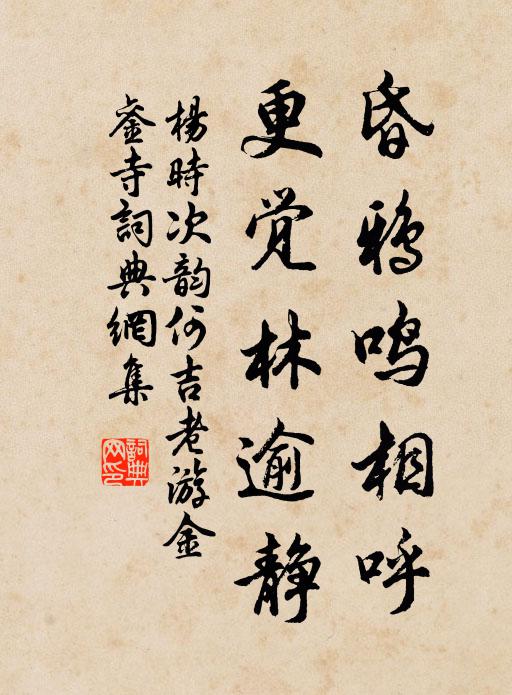 昏鸦鸣相呼
更觉林逾静
楊時次韵何吉老游金
銮寺詞典網集
詞典网印